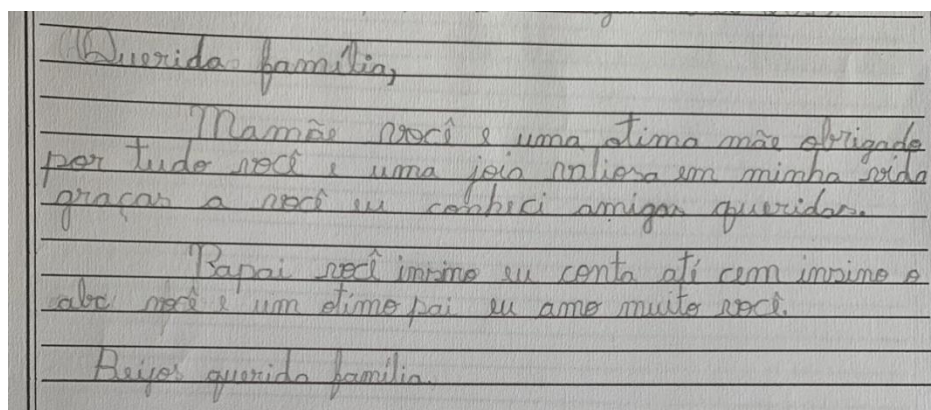 Querida família,
Mamãe você e uma otima mãe obrigado
por tudo você e uma joia valiosa em minha vida
graças a você eu conheci amigos queridos.
Papai você insino eu conta até cem insino o
abc você e um otimo pai eu amo muito você.
Beijos querida família.